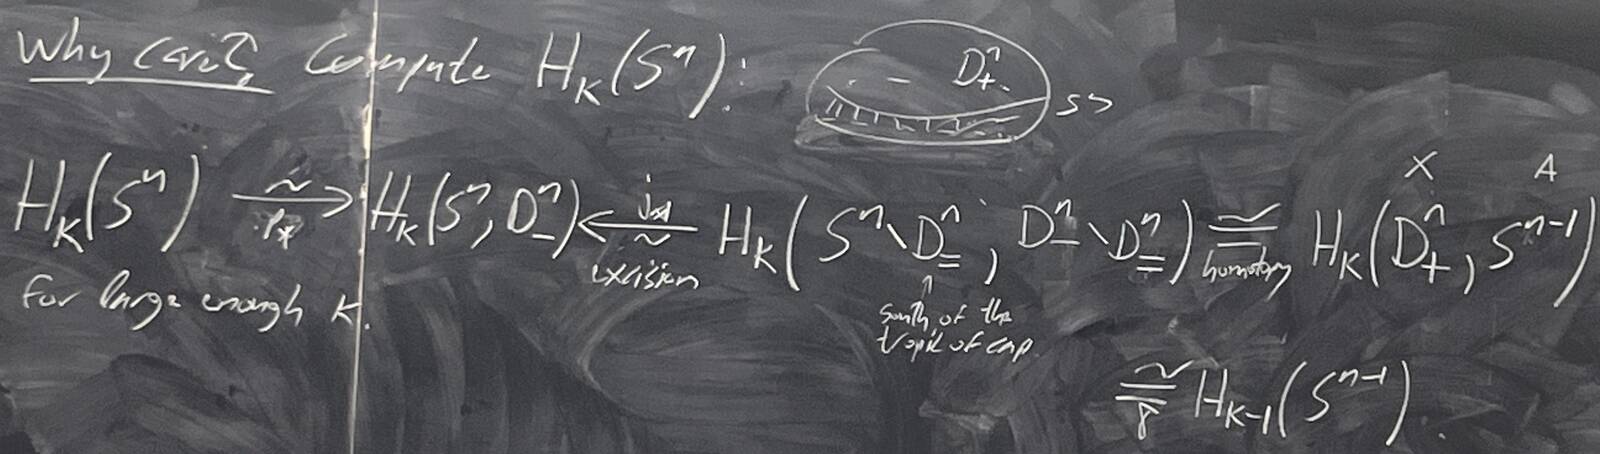 Why care? Compute Hₖ(Sⁿ):
D₊ⁿ
Hₖ(Sⁿ) →̃ p_* Hₖ(Sⁿ, D₋ⁿ) ←̃ j_* excision Hₖ(Sⁿ \ D₌ⁿ, D₋ⁿ \ D₌ⁿ) ≅ homotopy Hₖ(D₊ⁿ, Sⁿ⁻¹)
X A
for large enough k.
↑
south of the
tropic of cap.
≅ Hₖ₋₁(Sⁿ⁻¹).